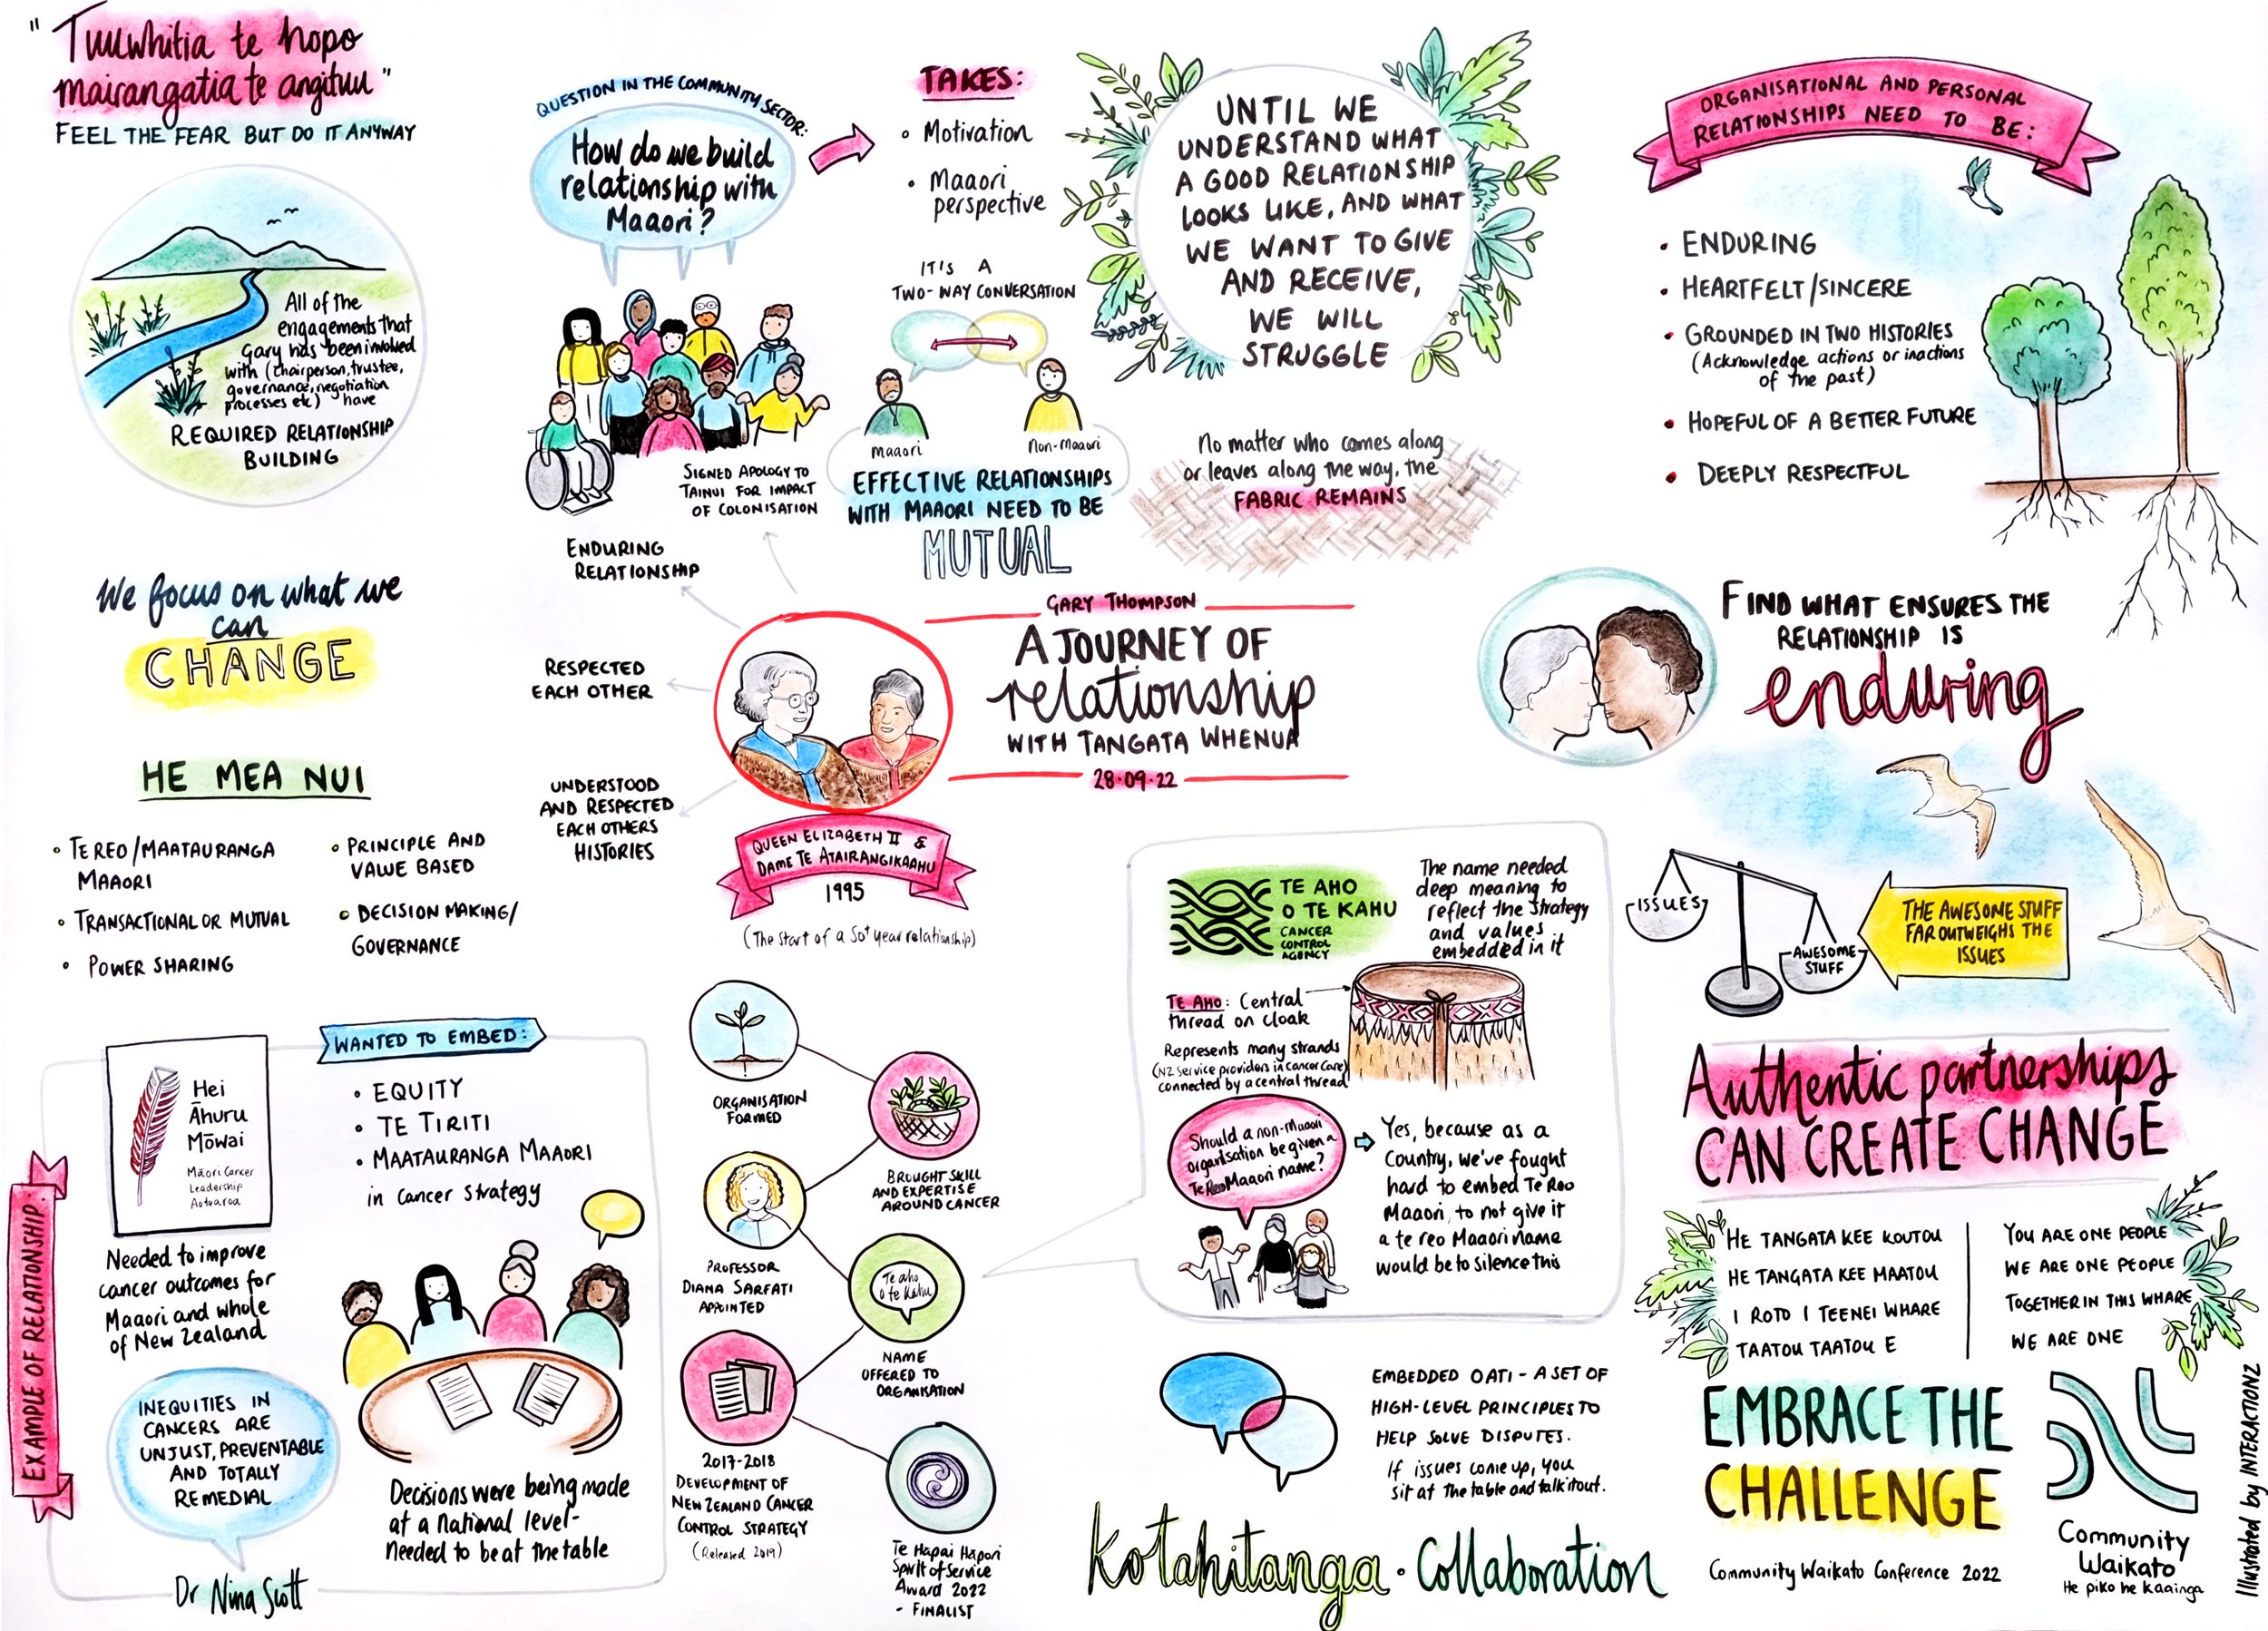 "Tuuwhitia te hopo
mairangatia te angituu"
FEEL THE FEAR BUT DO IT ANYWAY
All of the
engagements that
Gary has been involved
with (chairperson, trustee,
governance, negotiation
processes etc) have
REQUIRED RELATIONSHIP
BUILDING
We focus on what we
can
CHANGE
HE MEA NUI
• TE REO/MAATAURANGA
MAAORI
• TRANSACTIONAL OR MUTUAL
• POWER SHARING
• PRINCIPLE AND
VALUE BASED
• DECISION MAKING/
GOVERNANCE
QUESTION IN THE COMMUNITY SECTOR:
How do we build
relationship with
Maaori?
TAKES:
• Motivation
• Maaori
perspective
IT'S A
TWO-WAY CONVERSATION
maaori
Non-maaori
EFFECTIVE RELATIONSHIPS
WITH MAAORI NEED TO BE
MUTUAL
UNTIL WE
UNDERSTAND WHAT
A GOOD RELATIONSHIP
LOOKS LIKE, AND WHAT
WE WANT TO GIVE
AND RECEIVE,
WE WILL
STRUGGLE
No matter who comes along
or leaves along the way, the
FABRIC REMAINS
ORGANISATIONAL AND PERSONAL
RELATIONSHIPS NEED TO BE:
• ENDURING
• HEARTFELT/SINCERE
• GROUNDED IN TWO HISTORIES
(Acknowledge actions or inactions
of the past)
• HOPEFUL OF A BETTER FUTURE
• DEEPLY RESPECTFUL
SIGNED APOLOGY TO
TAINUI FOR IMPACT
OF COLONISATION
ENDURING
RELATIONSHIP
RESPECTED
EACH OTHER
UNDERSTOOD
AND RESPECTED
EACH OTHERS
HISTORIES
QUEEN ELIZABETH II &
DAME TE ATAIRANGIKAAHU
1995
(The start of a 50+ year relationship)
GARY THOMPSON
A JOURNEY OF
relationship
WITH TANGATA WHENUA
28·09·22
FIND WHAT ENSURES THE
RELATIONSHIP IS
enduring
ISSUES
AWESOME
STUFF
THE AWESOME STUFF
FAR OUTWEIGHS THE
ISSUES
EXAMPLE OF RELATIONSHIP:
Hei
Āhuru
Mōwai
Māori Cancer
Leadership
Aotearoa
Needed to improve
cancer outcomes for
Maaori and whole
of New Zealand
INEQUITIES IN
CANCERS ARE
UNJUST, PREVENTABLE
AND TOTALLY
REMEDIAL
Dr Nina Scott
WANTED TO EMBED:
• EQUITY
• TE TIRITI
• MAATAURANGA MAAORI
in cancer strategy
Decisions were being made
at a national level-
needed to be at the table
ORGANISATION
FORMED
BROUGHT SKILL
AND EXPERTISE
AROUND CANCER
PROFESSOR
DIANA SARFATI
APPOINTED
Te aho
o te Kahu
NAME
OFFERED TO
ORGANISATION
2017-2018
DEVELOPMENT OF
NEW ZEALAND CANCER
CONTROL STRATEGY
(Released 2019)
Te Hāpai Hāpori
Spirit of Service
Award 2022
- FINALIST
TE AHO
O TE KAHU
CANCER
CONTROL
AGENCY
The name needed
deep meaning to
reflect the strategy
and values
embedded in it
TE AHO: Central
thread on cloak
Represents many strands
(NZ service providers in cancer care)
connected by a central thread
Should a non-maaori
organisation be given a
Te Reo Maaori name?
Yes, because as a
Country, we've fought
hard to embed Te Reo
Maaori, to not give it
a te reo Maaori name
would be to silence this
EMBEDDED OATI - A SET OF
HIGH-LEVEL PRINCIPLES TO
HELP SOLVE DISPUTES.
If issues come up, you
sit at the table and talk it out.
Kotahitanga · Collaboration
Authentic partnerships
CAN CREATE CHANGE
HE TANGATA KEE KOUTOU
HE TANGATA KEE MAATOU
I ROTO I TEENEI WHARE
TAATOU TAATOU E
YOU ARE ONE PEOPLE
WE ARE ONE PEOPLE
TOGETHER IN THIS WHARE
WE ARE ONE
EMBRACE THE
CHALLENGE
Community Waikato Conference 2022
Community
Waikato
He piko he kaainga
Illustrated by INTERACTIONZ